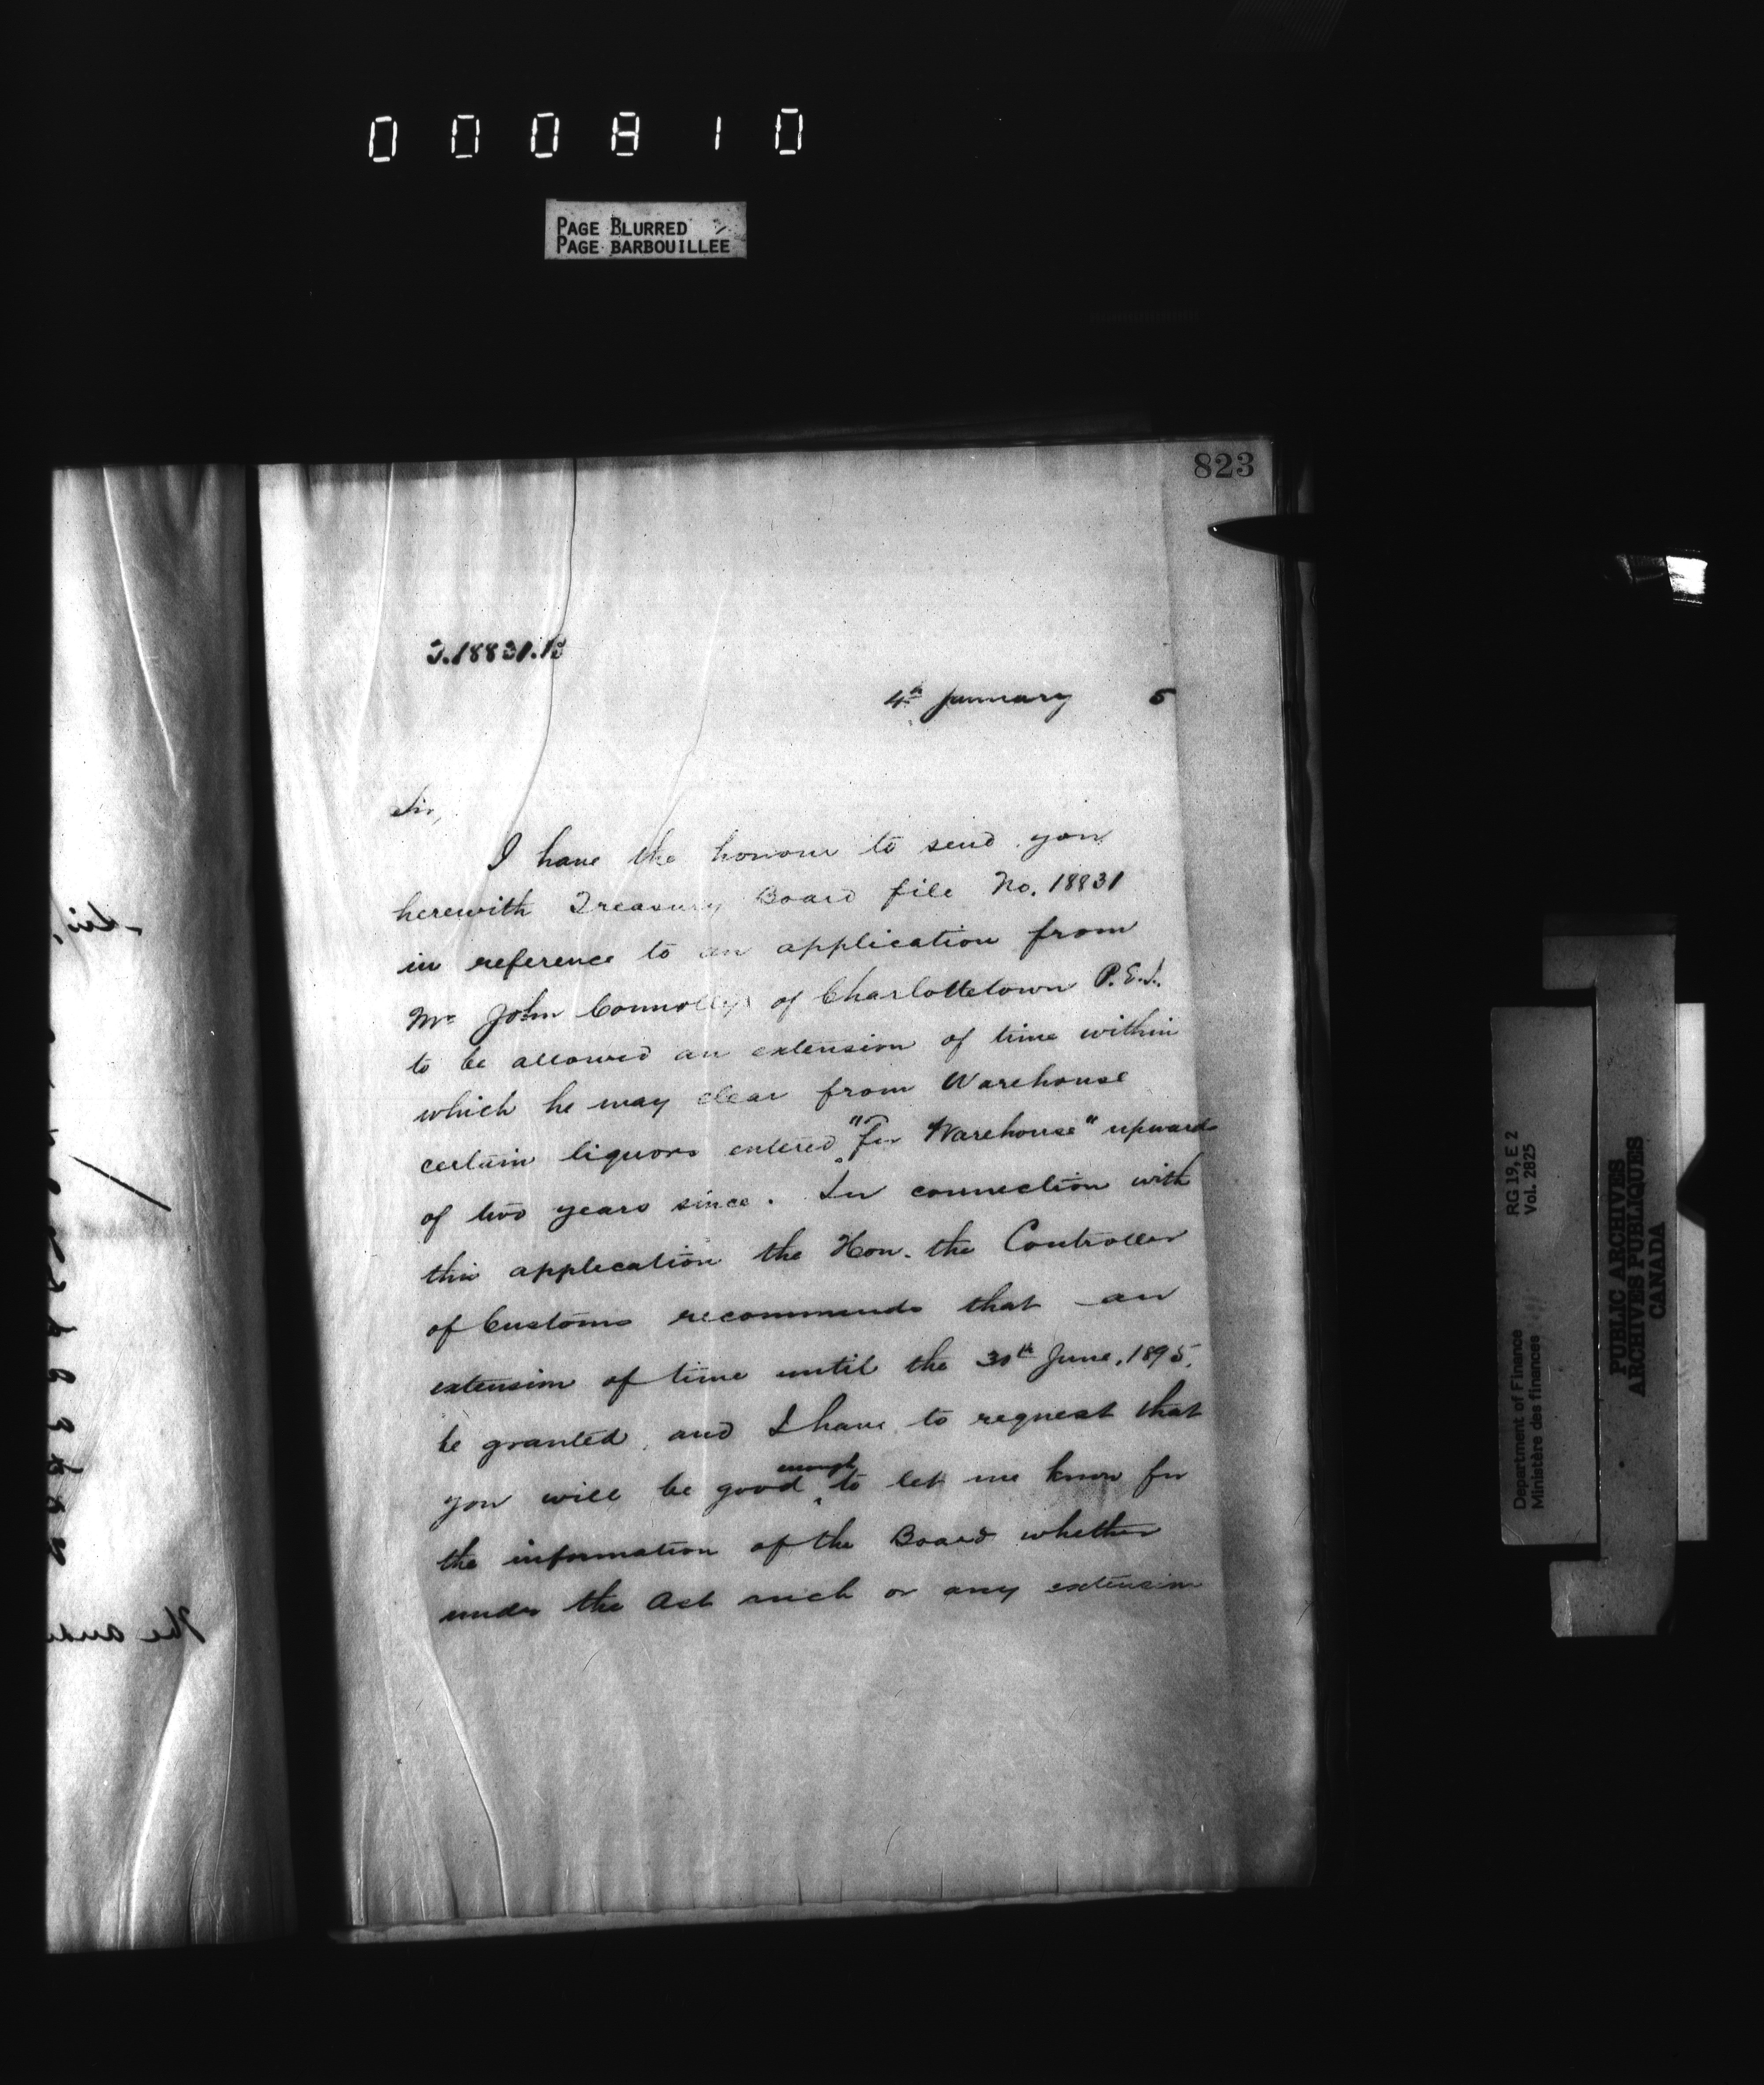 000810
PAGE BLURRED
PAGE BARBOUILLÉE
823
4th January 5
Sir,
I have the honour to send you
herewith Treasury Board file No. 18831
in reference to an application from
Mr John Connolly of Charlottetown P.E.I.
to be allowed an extension of time within
which he may clear from Warehouse
certain liquors entered "for Warehouse" upwards
of two years since. In connection with
this application the Hon. the Controller
of Customs recommends that an
extension of time until the 30th June, 1895,
be granted, and I have to request that
you will be good enough to let me know for
the information of the Board whether
under the Act such or any extension
Sir,
The
RG 19, E 2
Vol. 2825
Department of Finance
Ministère des finances
PUBLIC ARCHIVES
ARCHIVES PUBLIQUES
CANADA